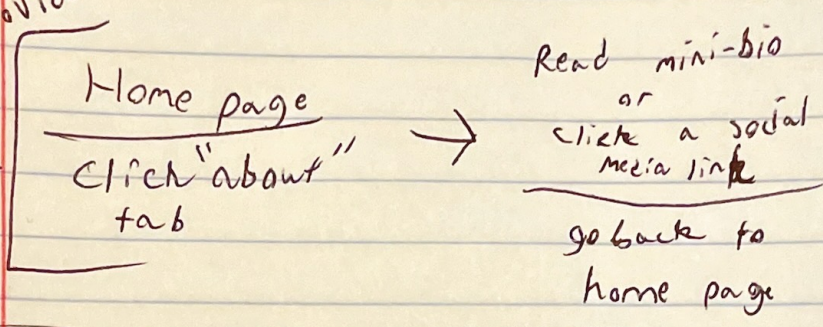 Home page
Click "about"
tab
→
Read mini-bio
or
click a social
media link
go back to
home page